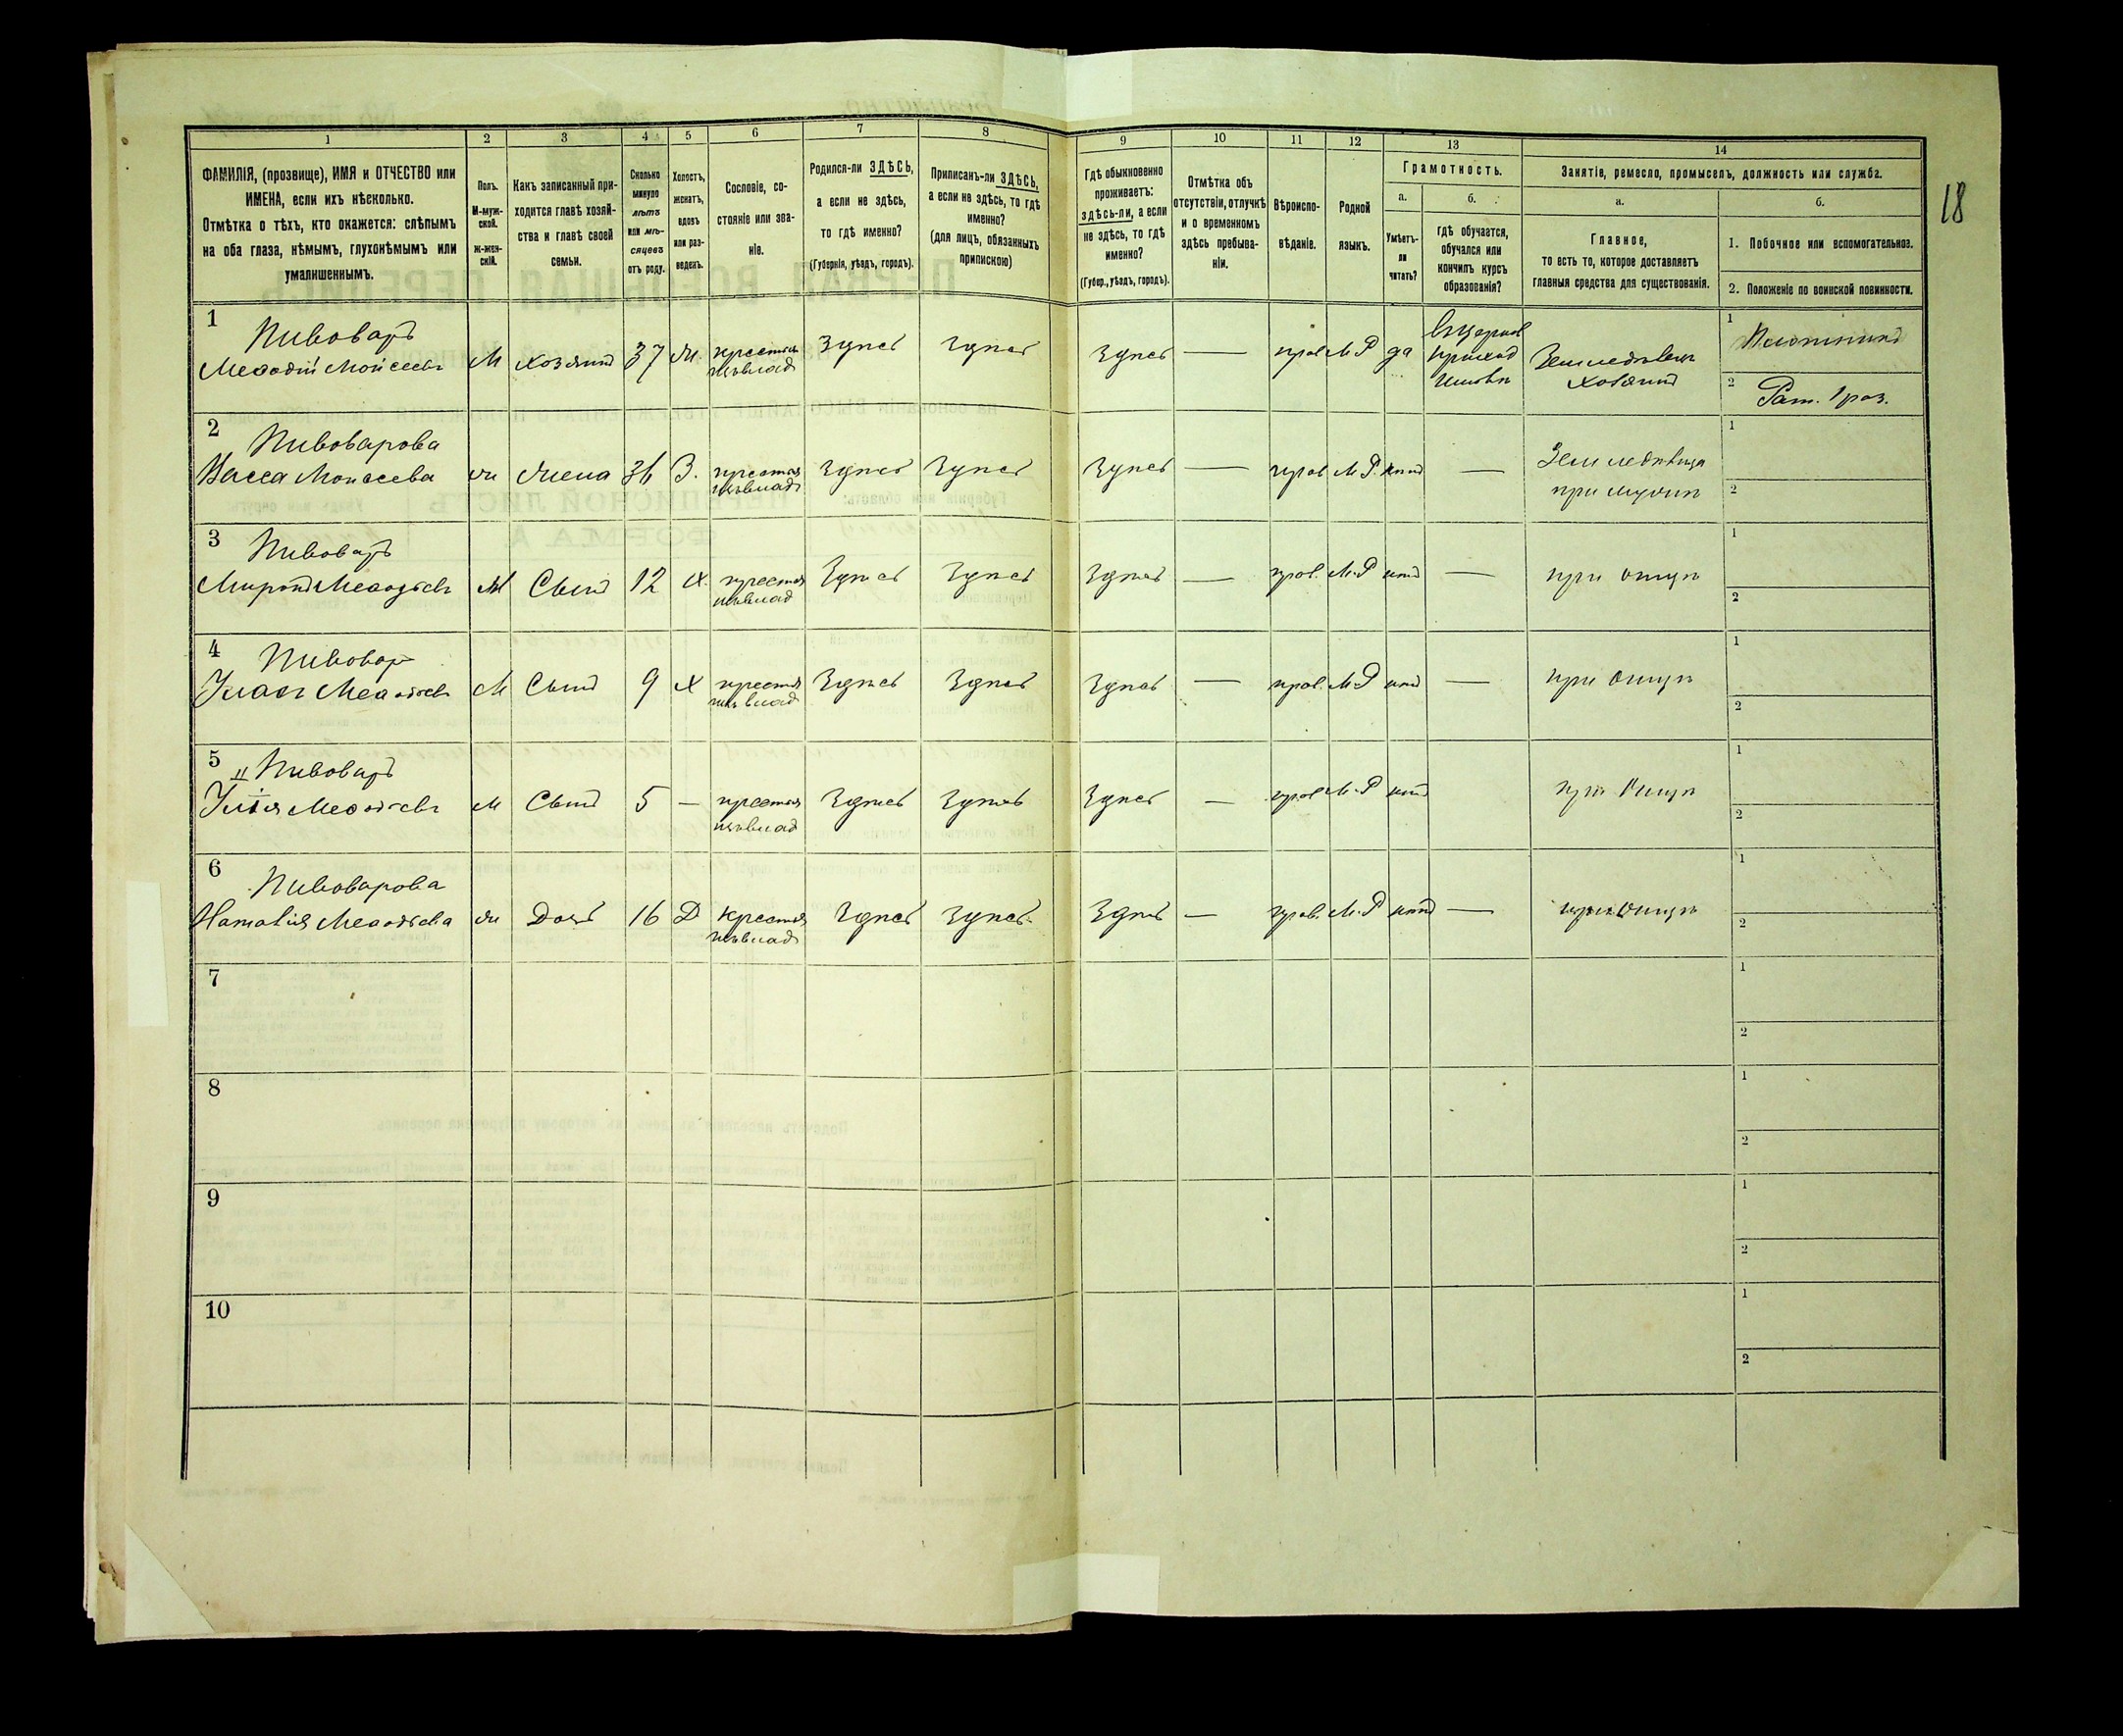 18
1 2 3 4 5 6 7 8 9 10 11 12 13 14
ФАМИЛІЯ, (прозвище), ИМЯ и ОТЧЕСТВО или
ИМЕНА, если ихъ нѣсколько.
Отмѣтка о тѣхъ, кто окажется: слѣпымъ
на оба глаза, нѣмымъ, глухонѣмымъ или
умалишеннымъ.
Полъ.
М-муж-
ской.
ж-жен-
скій.
Какъ записанный при-
ходится главѣ хозяй-
ства и главѣ своей
семьи.
Сколько
минуло
лѣтъ
или мѣ-
сяцевъ
отъ роду.
Холостъ,
женатъ,
вдовъ
или раз-
веденъ.
Сословіе, со-
стояніе или зва-
ніе.
Родился-ли ЗДѢСЬ,
а если не здѣсь,
то гдѣ именно?
(Губернія, уѣздъ, городъ).
Приписанъ-ли ЗДѢСЬ,
а если не здѣсь, то гдѣ
именно?
(для лицъ, обязанныхъ
припискою)
Гдѣ обыкновенно
проживаетъ:
здѣсь-ли, а если
не здѣсь, то гдѣ
именно?
(Губер., уѣздъ, городъ).
Отмѣтка объ
отсутствіи, отлучкѣ
и о временномъ
здѣсь пребыва-
ніи.
Вѣроиспо-
вѣданіе.
Родной
языкъ.
Грамотность.
а.
Умѣетъ-
ли
читать?
б.
гдѣ обучается,
обучался или
кончилъ курсъ
образованія?
Занятіе, ремесло, промыселъ, должность или служба.
а.
Главное,
то есть то, которое доставляетъ
главныя средства для существованія.
б.
1. Побочное или вспомогательное.
2. Положеніе по воинской повинности.
1
Пивоваръ
Мефодій Моисеевъ М хозяинъ 37 Ж. крестья Здѣсь Здѣсь Здѣсь — прав М Р да
Земледѣлец
хозяинъ
1 Плотникъ
2 Рат. 1 раз.
2
Пивоварова
Васса Моисеева ж Жена 36 З. крестья Здѣсь Здѣсь Здѣсь — прав М.Р. нѣтъ —
Земледѣлица
при мужѣ
1
2
3
Пивоваръ
Миронъ Мефодіевъ М Сынъ 12 Х. крестья Здѣсь Здѣсь Здѣсь — прав. М.Р нѣтъ — при отцѣ
1
2
4
Пивовар
Мефодіевъ М Сынъ 9 Х крестья Здѣсь Здѣсь Здѣсь — прав. М.Р нѣтъ — при отцѣ
1
2
5
Пивоваръ
Илія Мефодіевъ М Сынъ 5 — крестья Здѣсь Здѣсь Здѣсь — прав М.Р нѣтъ при отцѣ
1
2
6
Пивоварова
Наталія Мефодіева ж Дочь 16 Д Крестья Здѣсь Здѣсь Здѣсь — прав. М.Р нѣтъ — при отцѣ
1
2
7
1
2
8
1
2
9
1
2
10
1
2